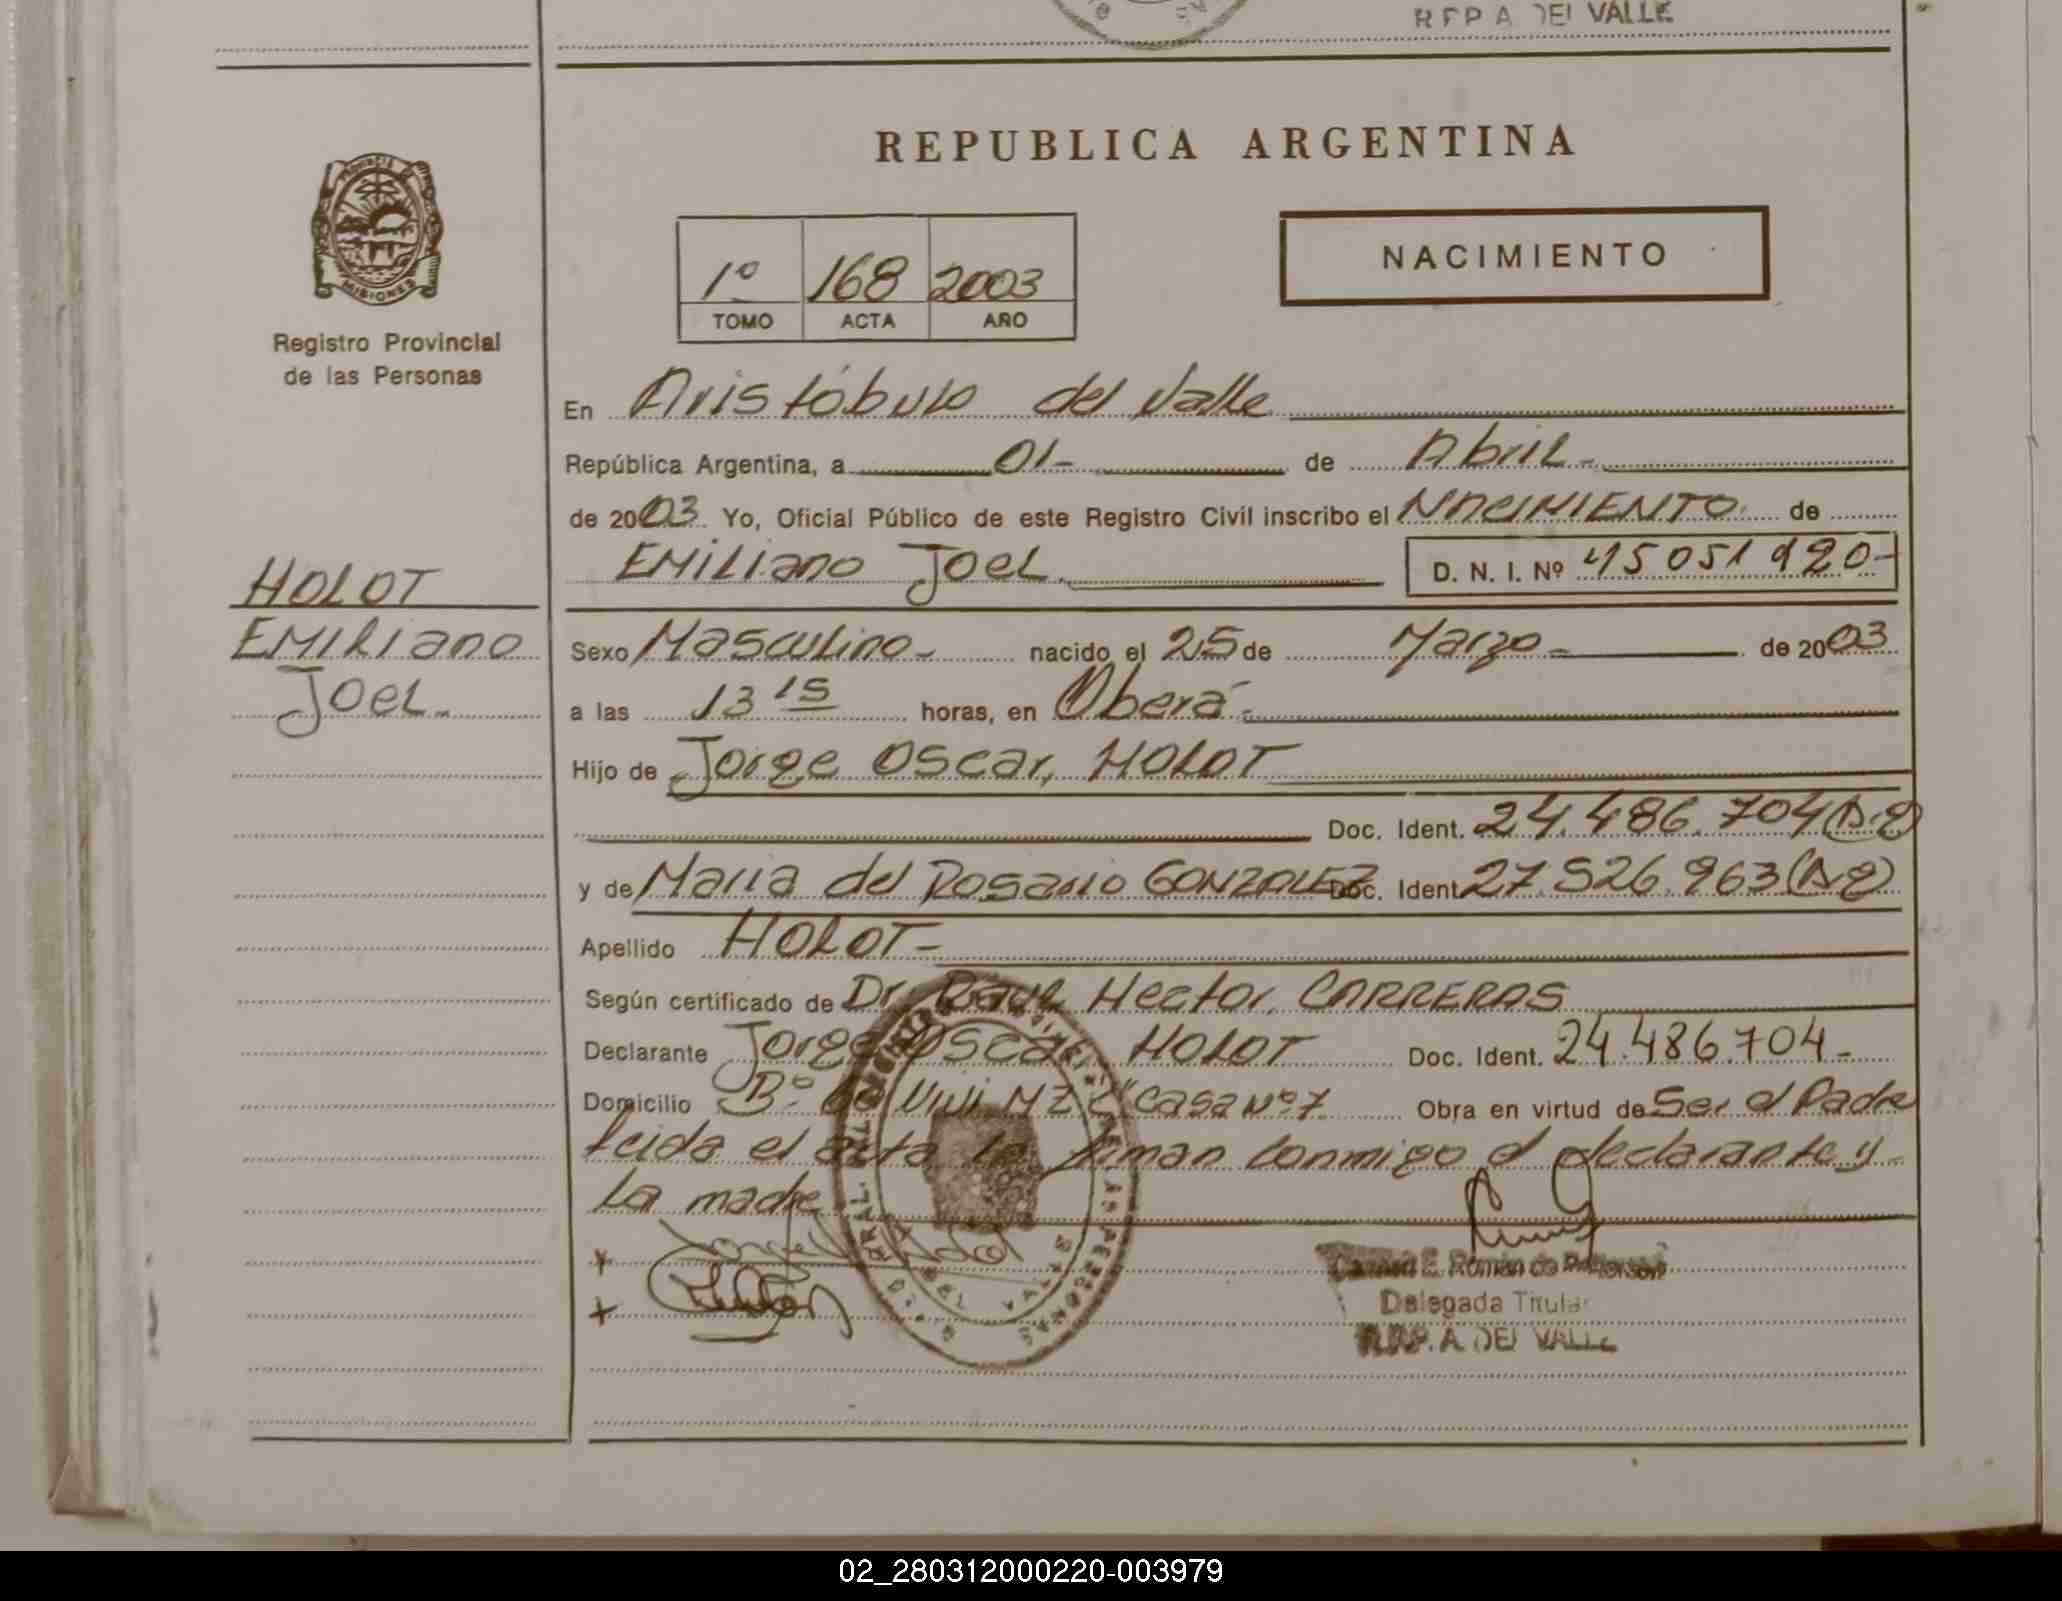 R.P.P. A. DEL VALLE
REPUBLICA ARGENTINA
PROVINCIA DE
MISIONES
Registro Provincial
de las Personas
1º 168 2003
TOMO ACTA AÑO
NACIMIENTO
En Aristóbulo del Valle
República Argentina, a 01- de Abril-
de 2003 Yo, Oficial Público de este Registro Civil inscribo el NACIMIENTO de
EMiLiano JOEL D. N. I. Nº 45 051 920-
HOLOT
EMiliano
JOEL-
Sexo Masculino- nacido el 25 de Marzo- de 2003
a las 13 15 horas, en Oberá-
Hijo de Jorge Oscar, HOLOT
Doc. Ident. 24.486.704
y de Maria del Rosario GONZALEZ Doc. Ident. 27.526.963
Apellido HOLOT-
Según certificado de Dr. Raul Hector, CARRERAS
Declarante Jorge Oscar HOLOT Doc. Ident. 24.486.704-
Domicilio Bº Viv. MZ "C" Casa Nº 7 Obra en virtud de Ser el Padre
Leida el acta la firman conmigo el declarante y
La madre
Delegada Titular
R.P.P. A. DEL VALLE
02_280312000220-003979